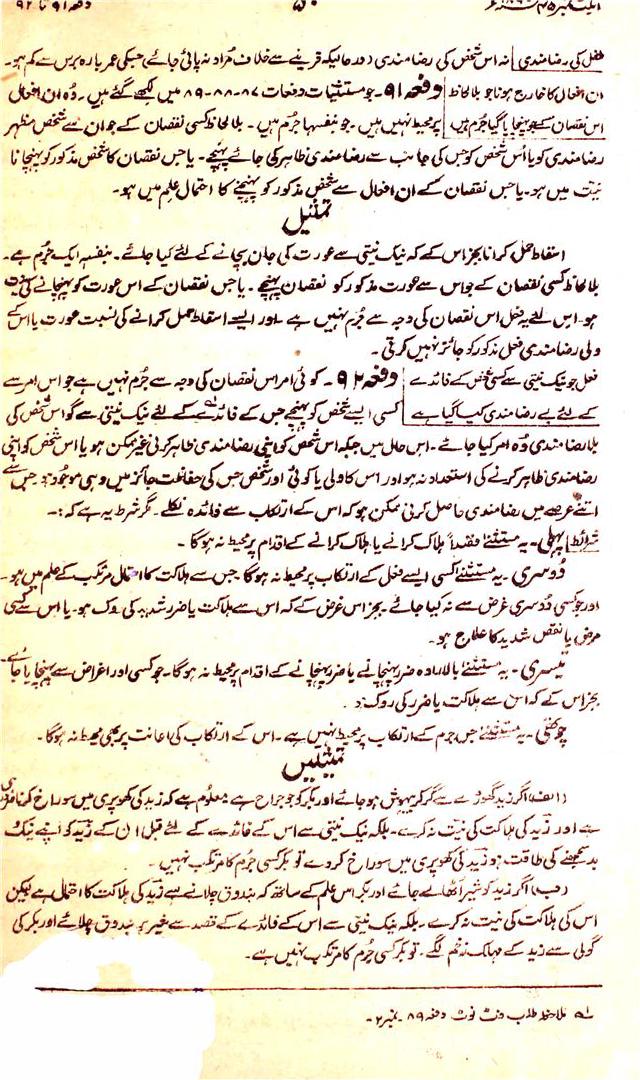 ایکٹ نمبر ۴۵ ۵۰ دفعہ ۹۱ تا ۹۲
طفل کی رضامندی نہ اس شخص کی رضامندی (درحالیکہ قرینے سے خلاف مُراد نہ پائی جائے) جسکی عمر بارہ برس سے کم ہو۔
ان افعال کا خارج ہونا جو بلا لحاظ دفعہ ۹۱۔ جو مستثنیات دفعات ۸۷-۸۸-۸۹ میں لکھے گئے ہیں۔ وُہ ان افعال
اس نقصان کے جو پہنچایا گیا جرم ہیں پر محیط نہیں ہیں۔ جو بنفسہا جرم ہیں۔ بلا لحاظ کسی نقصان کے جو ان سے شخص مظہر
رضامندی کو یا اُس شخص کو جس کی جانب سے رضامندی ظاہر کی جائے پہنچے۔ یا جس نقصان کا شخص مذکور کو پہنچانا
نیت میں ہو۔ یا جس نقصان کے ان افعال سے شخص مذکور کو پہنچنے کا احتمال علم میں ہو۔
تمثیل
اسقاط حمل کرانا بجز اس کے کہ نیک نیتی سے عورت کی جان بچانے کے لئے کیا جائے۔ بنفسہ ایک جُرم ہے۔
بلا لحاظ کسی نقصان کے جو اس سے عورت مذکور کو نقصان پہنچے۔ یا جس نقصان کے اس عورت کو پہنچانے کی نیت
ہو۔ اس لئے یہ فعل اس نقصان کی وجہ سے جُرم نہیں ہے اور ایسے اسقاط حمل کرانے کی نسبت عورت یا اس کے
ولی رضامندی فعل مذکور کو جائز نہیں کرتی۔
فعل جو نیک نیتی سے کسی شخص کے فائدے دفعہ ۹۲۔ کوئی امر اس نقصان کی وجہ سے جُرم نہیں ہے جو اس امر سے
کے لئے بے رضامندی کیا گیا ہے کسی ایسے شخص کو پہنچے جس کے فائدے کے لئے نیک نیتی سے گو اس شخص کی
بلا رضامندی وُہ امر کیا جائے۔ اس حال میں جبکہ اس شخص کو اپنی رضامندی ظاہر کرنی غیر ممکن ہو یا اس شخص کو اپنی
رضامندی ظاہر کرنے کی استعداد نہ ہو اور اس کا ولی یا کوئی اور شخص جس کی حفاظت جائز میں وہی موجود نہ ہو جس سے
اتنے عرصے میں رضامندی حاصل کرنی ممکن ہو کہ اس کے ارتکاب سے فائدہ نکلے۔ مگر شرط یہ ہے کہ:-
شرائط پہلی۔ یہ مستثنےٰ قصداً ہلاک کرانے یا ہلاک کرانے کے اقدام پر محیط نہ ہوگا۔
دُوسری۔ یہ مستثنےٰ کسی ایسے فعل کے ارتکاب پر محیط نہ ہوگا جس سے ہلاکت کا احتمال مرتکب کے علم میں ہو۔
اور جو کسی دُوسری غرض سے نہ کیا جائے۔ بجز اس غرض کے کہ اس سے ہلاکت یا ضرر شدید کی روک ہو۔ یا اس سے کسی
مرض یا نقص شدید کا علاج ہو۔
تیسری۔ یہ مستثنےٰ بالارادہ ضرر پہنچانے یا ضرر پہنچانے کے اقدام پر محیط نہ ہوگا۔ جو کسی اور اغراض سے پہنچایا جائے۔
بجز اس کے کہ اس سے ہلاکت یا ضرر کی روک ہو۔
چوتھی۔ یہ مستثنےٰ جس جرم کے ارتکاب پر محیط نہیں ہے۔ اس کے ارتکاب کی اعانت پر بھی محیط نہ ہوگا۔
تمثیلیں
(الف) اگر زید گھوڑے سے گر کر بیہوش ہو جائے اور بکر کو جو جراح ہے معلُوم ہے کہ زید کی کھوپری میں سوراخ کرنا ضروری
ہے اور زید کی ہلاکت کی نیت نہ کرے۔ بلکہ نیک نیتی سے اس کے فائدے کے لئے قبل ان کے زید کو اپنے نیک
بد سمجھنے کی طاقت ہو زید کی کھوپری میں سوراخ کردے تو بکر کسی جُرم کا مرتکب نہیں۔
(ب) اگر زید کو شیر اٹھا لے جائے اور بکر اس علم کے ساتھ کہ بندوق چلانے سے زید کی ہلاکت کا احتمال ہے لیکن
اس کی ہلاکت کی نیت نہ کرے۔ بلکہ نیک نیتی سے اس کے فائدے کے قصد سے شیر پر بندوق چلائے اور بکر کی
گولی سے زید کے مہلک زخم لگے۔ تو بکر کسی جُرم کا مرتکب نہیں ہے۔
۱؎ ملاحظہ طلب فٹ نوٹ دفعہ ۸۹ نمبر ۲۔